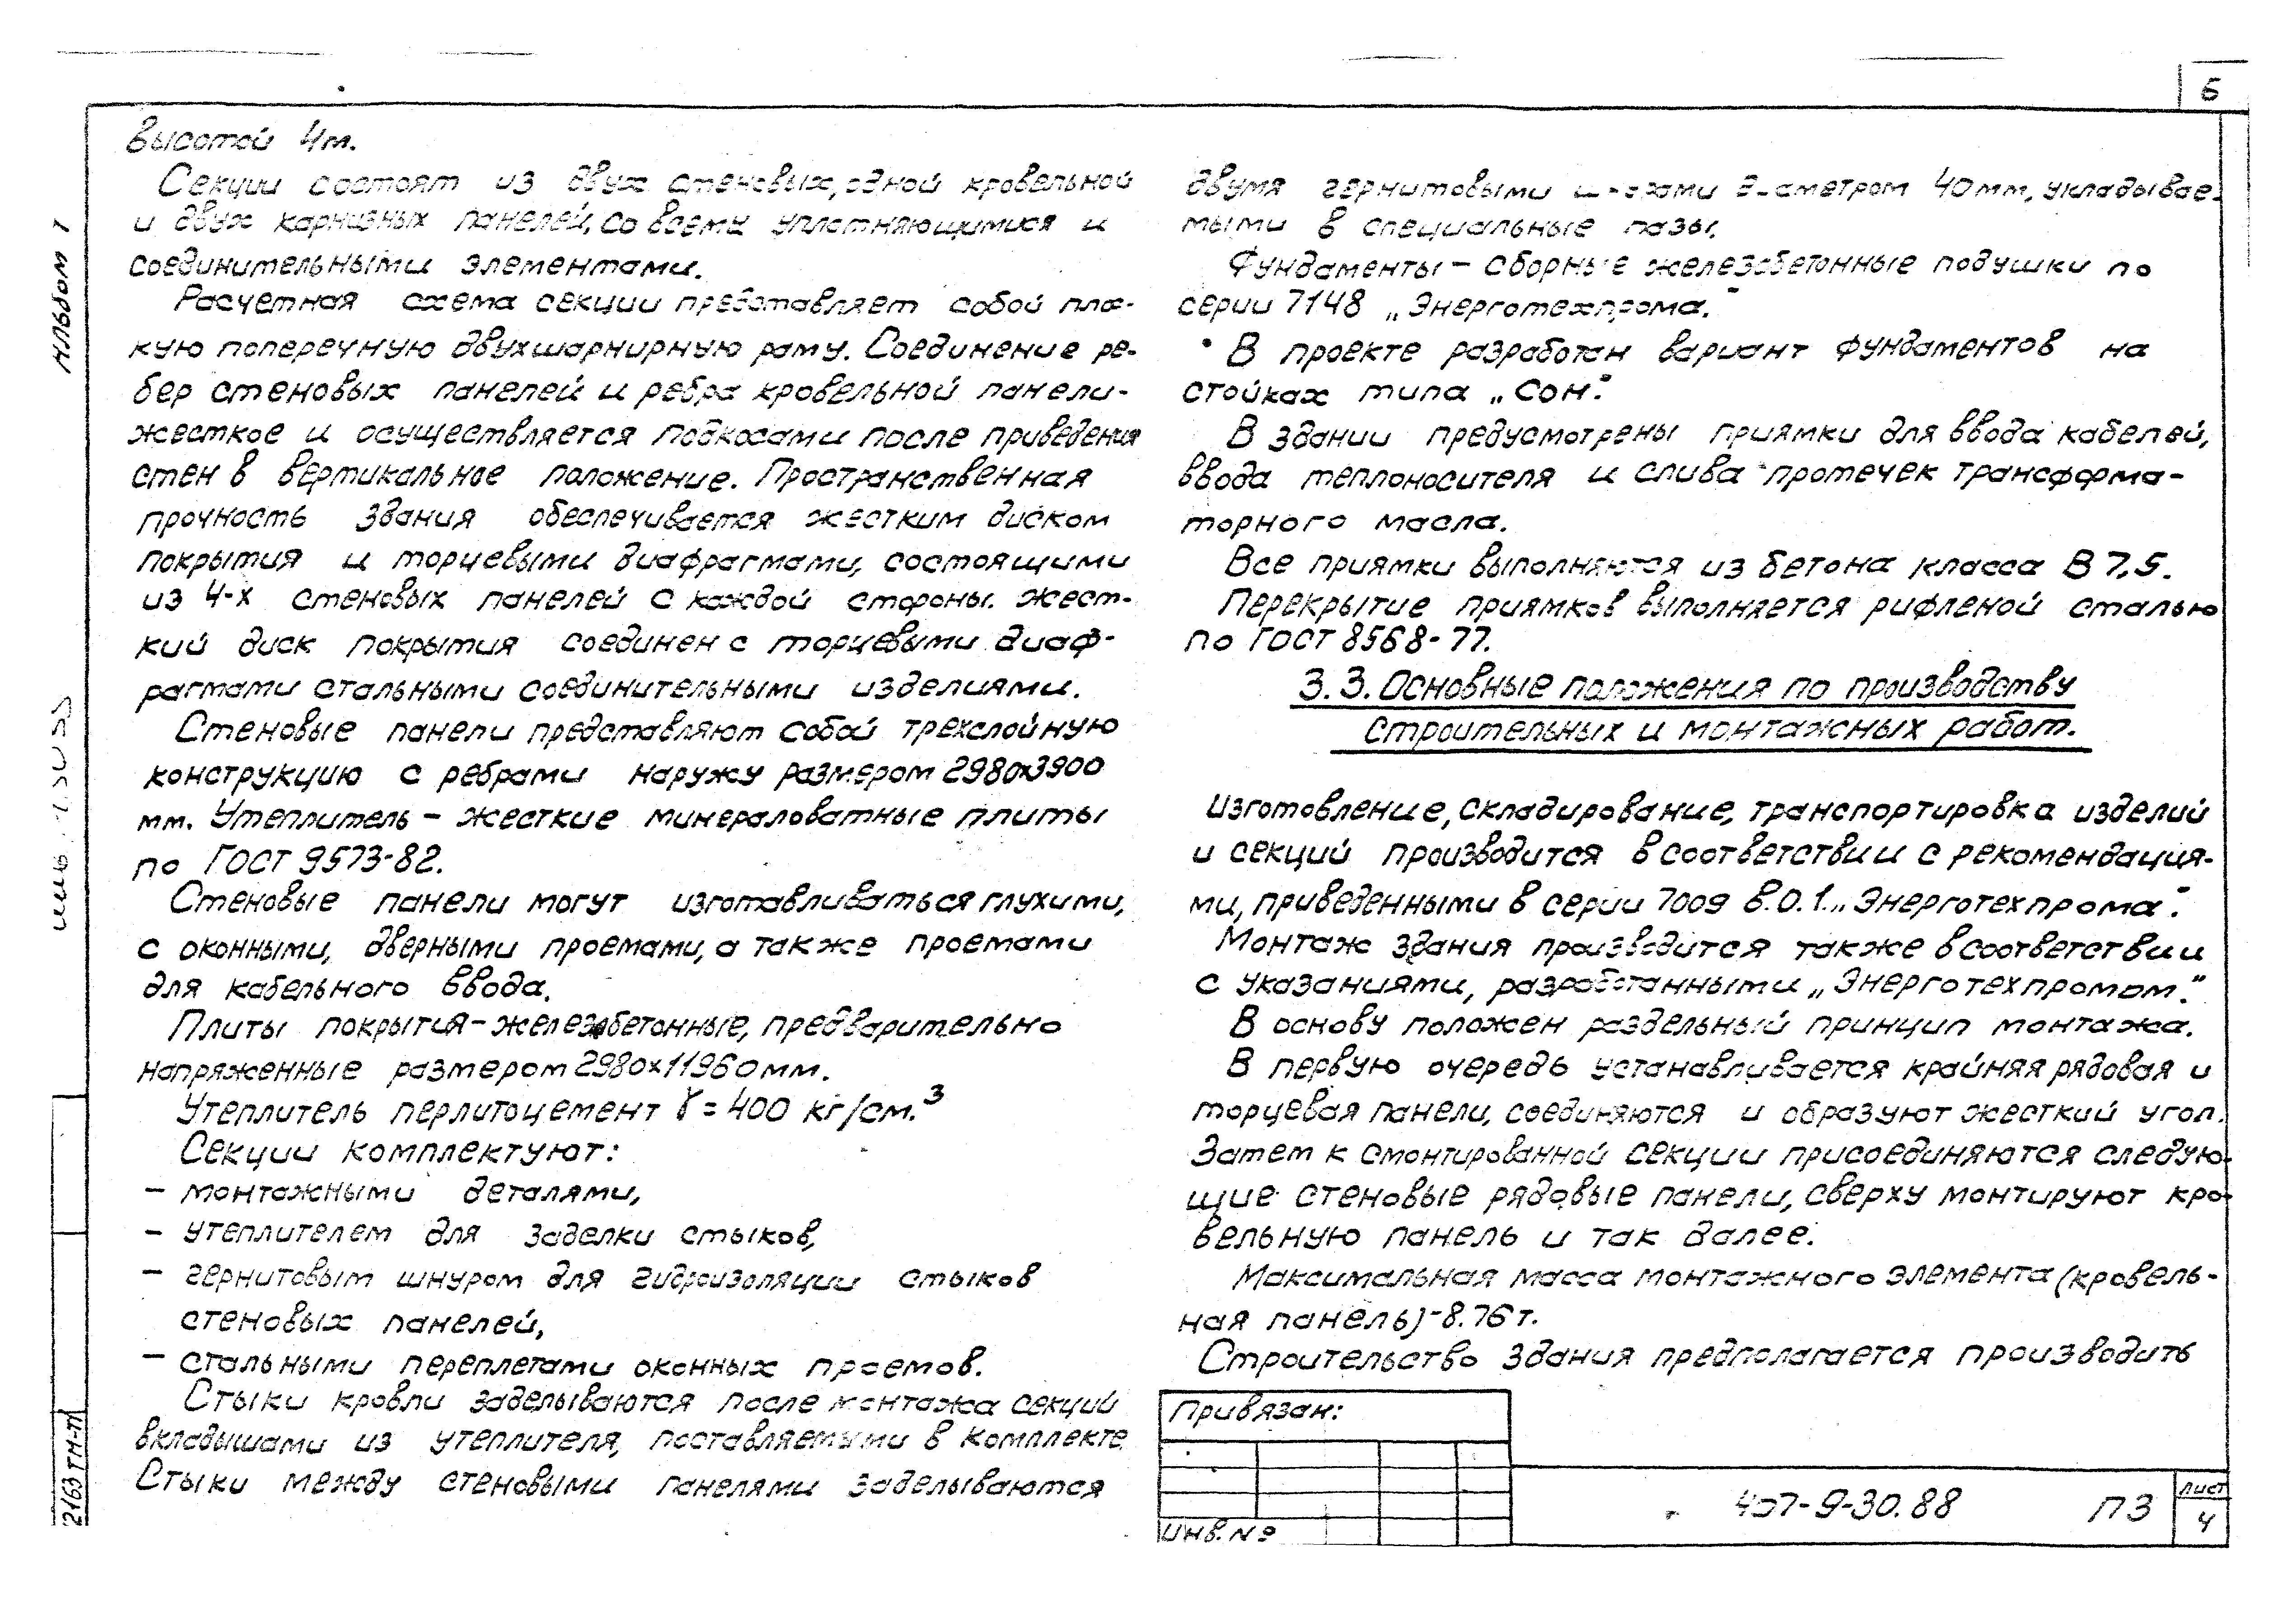 6
Альбом 1
высотой 4м.
Секции состоят из двух стеновых, одной кровельной
и двух карнизных панелей, со всему уплотняющимися и
соединительными элементами.
Расчетная схема секции представляет собой плос-
кую поперечную двухшарнирную раму. Соединение ре-
бер стеновых панелей и ребра кровельной панели-
жесткое и осуществляется подкосами после приведения
стен в вертикальное положение. Пространственная
прочность здания обеспечивается жестким диском
покрытия и торцевыми диафрагмами, состоящими
из 4-х стеновых панелей с каждой стороны. Жест-
кий диск покрытия соединен с торцевыми диаф-
рагмами стальными соединительными изделиями.
Стеновые панели представляют собой трехслойную
конструкцию с ребрами наружу размером 2980х3900
мм. Утеплитель – жесткие минераловатные плиты
по ГОСТ 9573-82.
Стеновые панели могут изготавливаться глухими,
с оконными, дверными проемами, а также проемами
для кабельного ввода.
Плиты покрытия-железобетонные, предварительно
напряженные размером 2980х11960мм.
Утеплитель перлитоцемент γ = 400 кг/см.³
Секции комплектуют:
– монтажными деталями,
– утеплителем для заделки стыков,
– гернитовым шнуром для гидроизоляции стыков
стеновых панелей,
– стальными переплетами оконных проемов.
Стыки кровли заделываются после монтажа секций
вкладышами из утеплителя, поставляемыми в комплекте.
Стыки между стеновыми панелями заделываются
двумя гернитовыми диаметром 40мм, укладывае-
мыми в специальные пазы.
Фундаменты – сборные железобетонные подушки по
серии 7148 „Энерготехпрома."
В проекте разработан вариант фундаментов на
стойках типа „СОН".
В здании предусмотрены приямки для ввода кабелей,
ввода теплоносителя и слива протечек трансформа-
торного масла.
Все приямки выполняются из бетона класса В 7,5.
Перекрытие приямков выполняется рифленой сталью
по ГОСТ 8568-77.
3.3. Основные положения по производству
строительных и монтажных работ.
Изготовление, складирование, транспортировка изделий
и секций производится в соответствии с рекомендация-
ми, приведенными в серии 7009 в.0.1 „Энерготехпрома".
Монтаж здания производится также в соответствии
с указаниями, разработанными „Энерготехпромом."
В основу положен раздельный принцип монтажа.
В первую очередь устанавливается крайняя рядовая и
торцевая панели, соединяются и образуют жесткий угол.
Затем к смонтированной секции присоединяются следую-
щие стеновые рядовые панели, сверху монтируют кро-
вельную панель и так далее.
Максимальная масса монтажного элемента (кровель-
ная панель)-8.76т.
Строительство здания предполагается производить
Привязан:
Инв. №
407-9-30.88 ПЗ
Лист
4
2163тм-т1